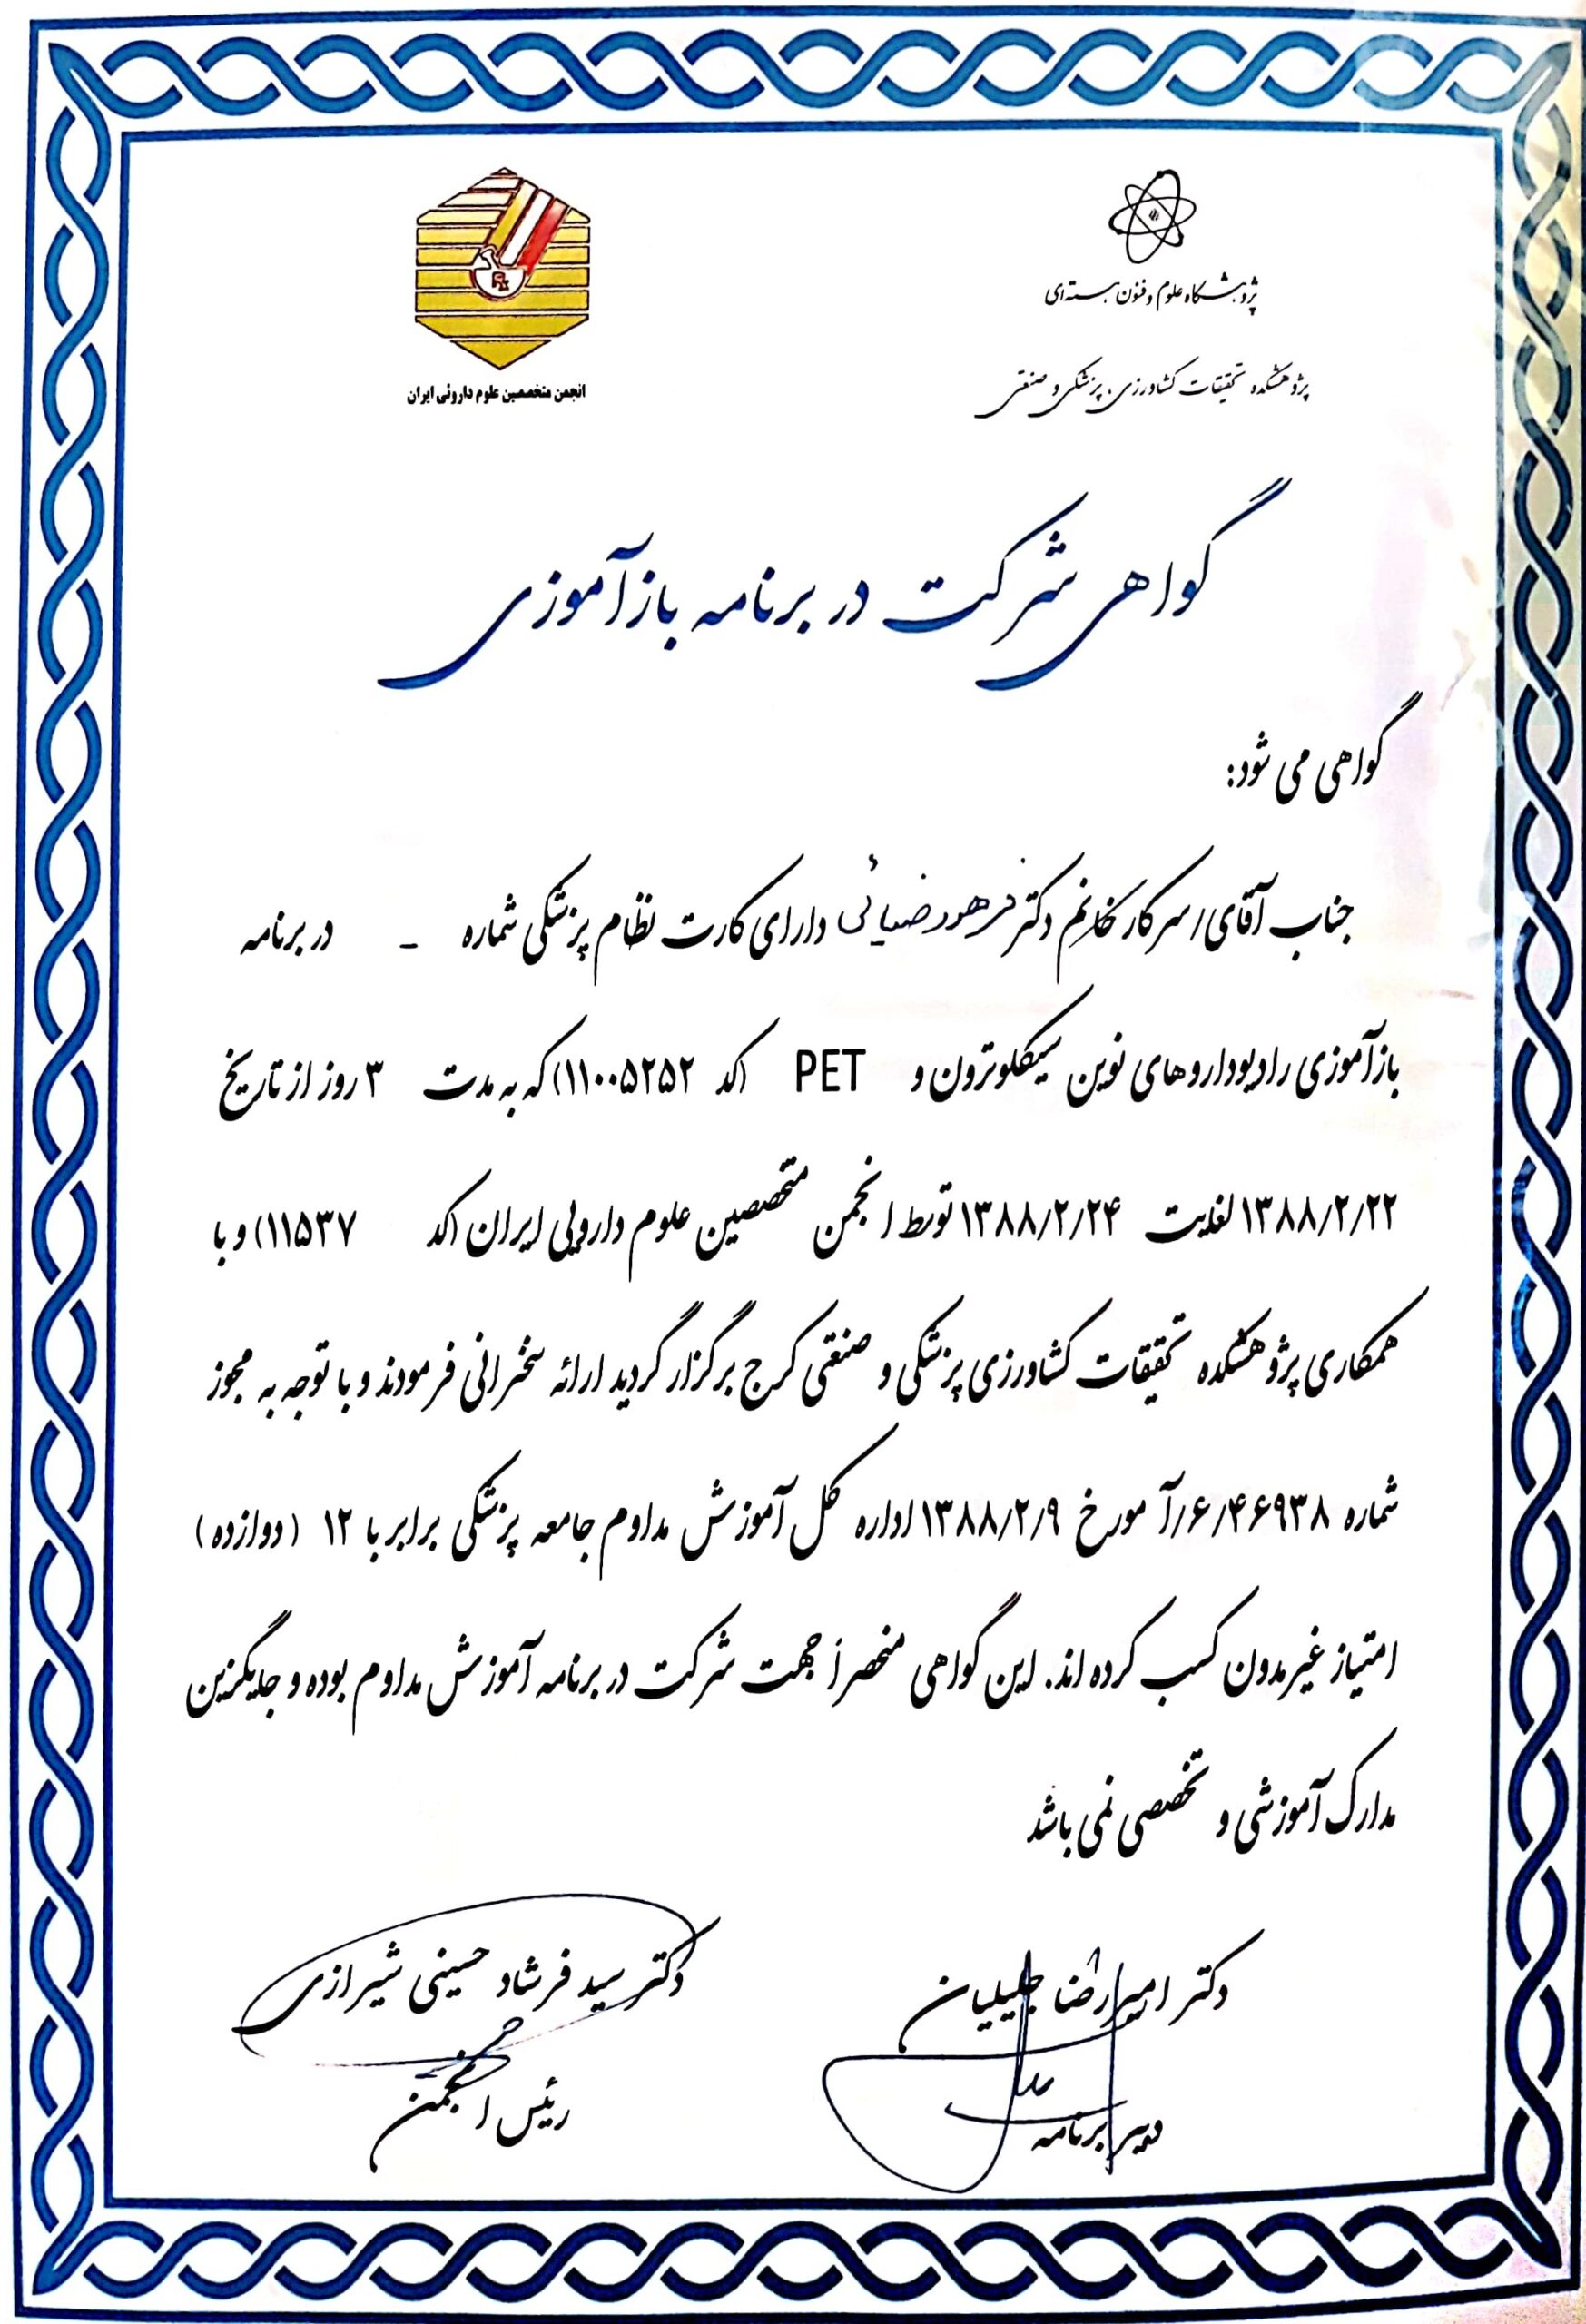 پژوهشگاه علوم و فنون هسته‌ای
پژوهشکده تحقیقات کشاورزی، پزشکی و صنعتی
Rx
انجمن متخصصین علوم داروئی ایران
گواهی شرکت در برنامه بازآموزی
گواهی می شود:
جناب آقای/سرکار خانم دکتر فرهود ضیائی دارای کارت نظام پزشکی شماره - در برنامه
بازآموزی رادیوداروهای نوین سیکلوترون و PET (کد ۱۱۰۰۵۲۵۲) که به مدت ۳ روز از تاریخ
۱۳۸۸/۲/۲۲ لغایت ۱۳۸۸/۲/۲۴ توسط انجمن متخصصین علوم دارویی ایران (کد ۱۱۵۳۷) و با
همکاری پژوهشکده تحقیقات کشاورزی پزشکی و صنعتی کرج برگزار گردید ارائه سخنرانی فرمودند و با توجه به مجوز
شماره ۶/۴۶۹۳۸/آ مورخ ۱۳۸۸/۲/۹ اداره کل آموزش مداوم جامعه پزشکی برابر با ۱۲ (دوازده)
امتیاز غیرمدون کسب کرده اند. این گواهی منحصراً جهت شرکت در برنامه آموزش مداوم بوده و جایگزین
مدارک آموزشی و تخصصی نمی باشد
دکتر امیررضا جلیلیان
دبیر برنامه
دکتر سید فرشاد حسینی شیرازی
رئیس انجمن